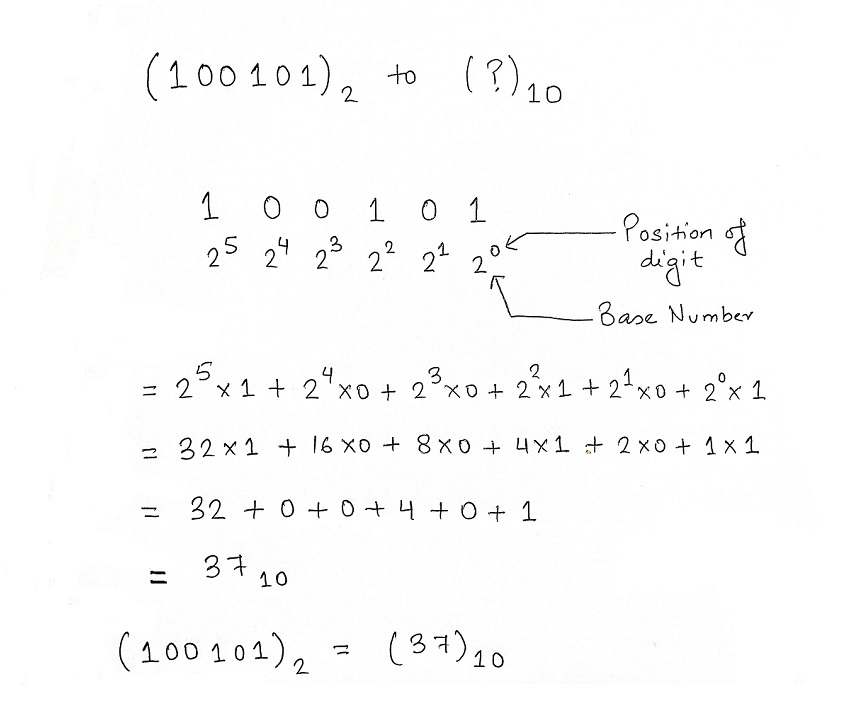 (100101)₂ to (?)₁₀
1 0 0 1 0 1
2⁵ 2⁴ 2³ 2² 2¹ 2⁰
Position of
digit
Base Number
= 2⁵×1 + 2⁴×0 + 2³×0 + 2²×1 + 2¹×0 + 2⁰×1
= 32×1 + 16×0 + 8×0 + 4×1 + 2×0 + 1×1
= 32 + 0 + 0 + 4 + 0 + 1
= 37₁₀
(100101)₂ = (37)₁₀